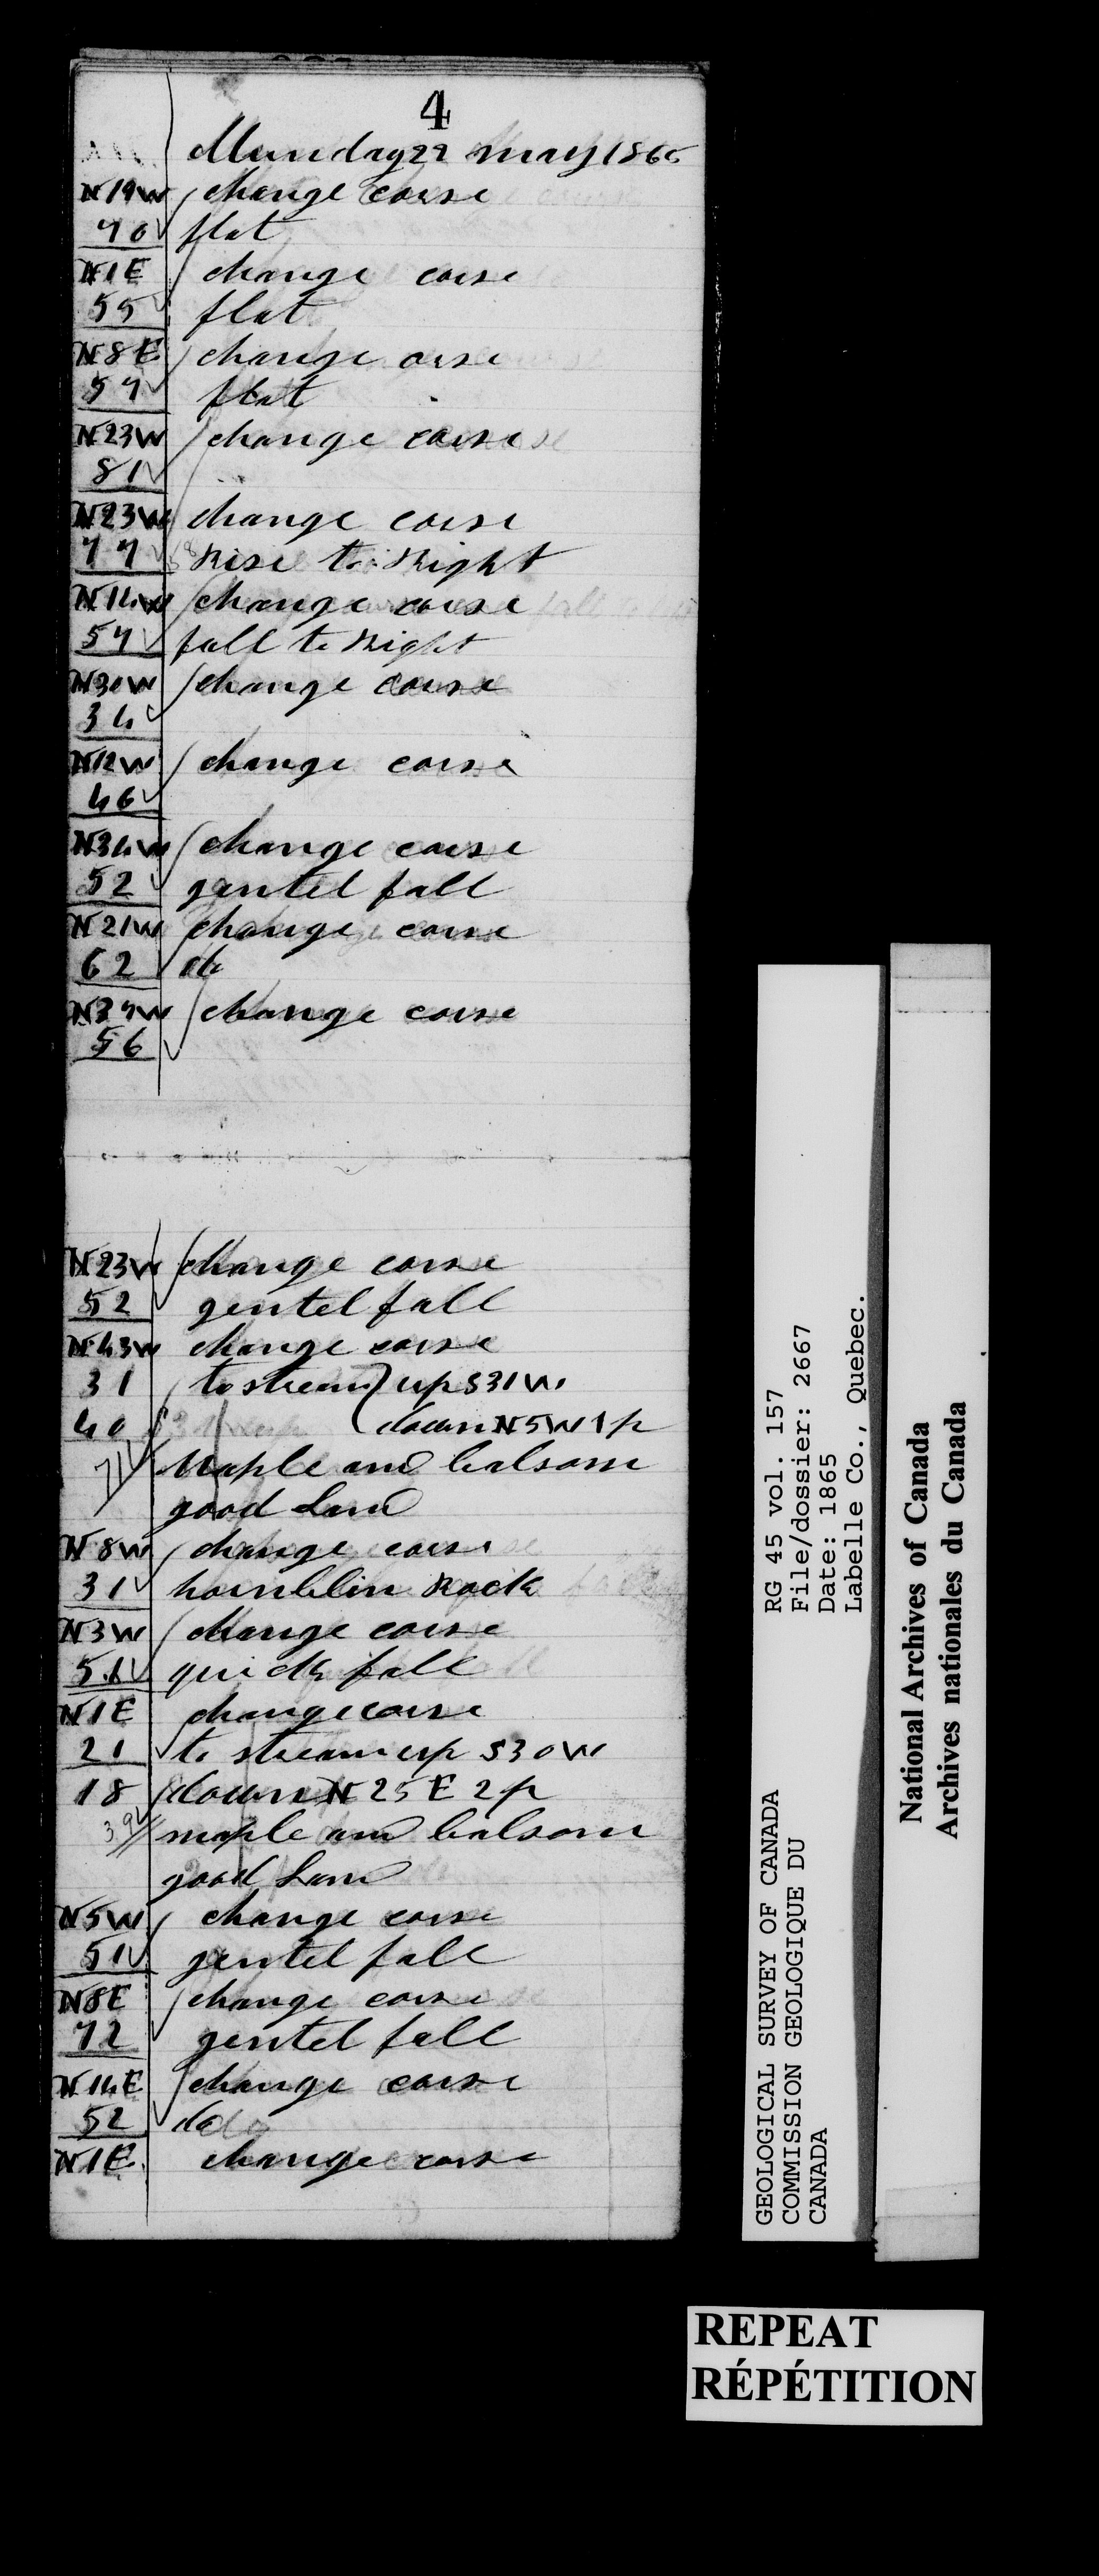 4
Munday 22 May 1865
N19W change corse
70 flat
N1E change corse
55 flat
N8E change orse
57 flat
N23W change corse
81
N23W change corse
77 Rise to Right
N14W change corse
57 fall to Right
N30W change corse
34
N12W change corse
46
N34W change corse
52 gentel fall
N21W change corse
62 do
N37W change corse
56
N23W change corse
52 gentel fall
N43W change corse
31 to stream up S31W
40 down N5W 1p
71 Maple and balsom
good Land
N8W change corse
31 hornblin Rock
N3W change corse
51 quick fall
N1E change corse
21 to stream up S30W
18 down N25E 2p
39 maple and balsom
good Land
N5W change corse
51 gentel fall
N8E change corse
72 gentel fall
N14E change corse
52 do
N1E change corse
GEOLOGICAL SURVEY OF CANADA
COMMISSION GEOLOGIQUE DU
CANADA
RG 45 vol. 157
File/dossier: 2667
Date: 1865
Labelle Co., Quebec.
National Archives of Canada
Archives nationales du Canada
REPEAT
RÉPÉTITION